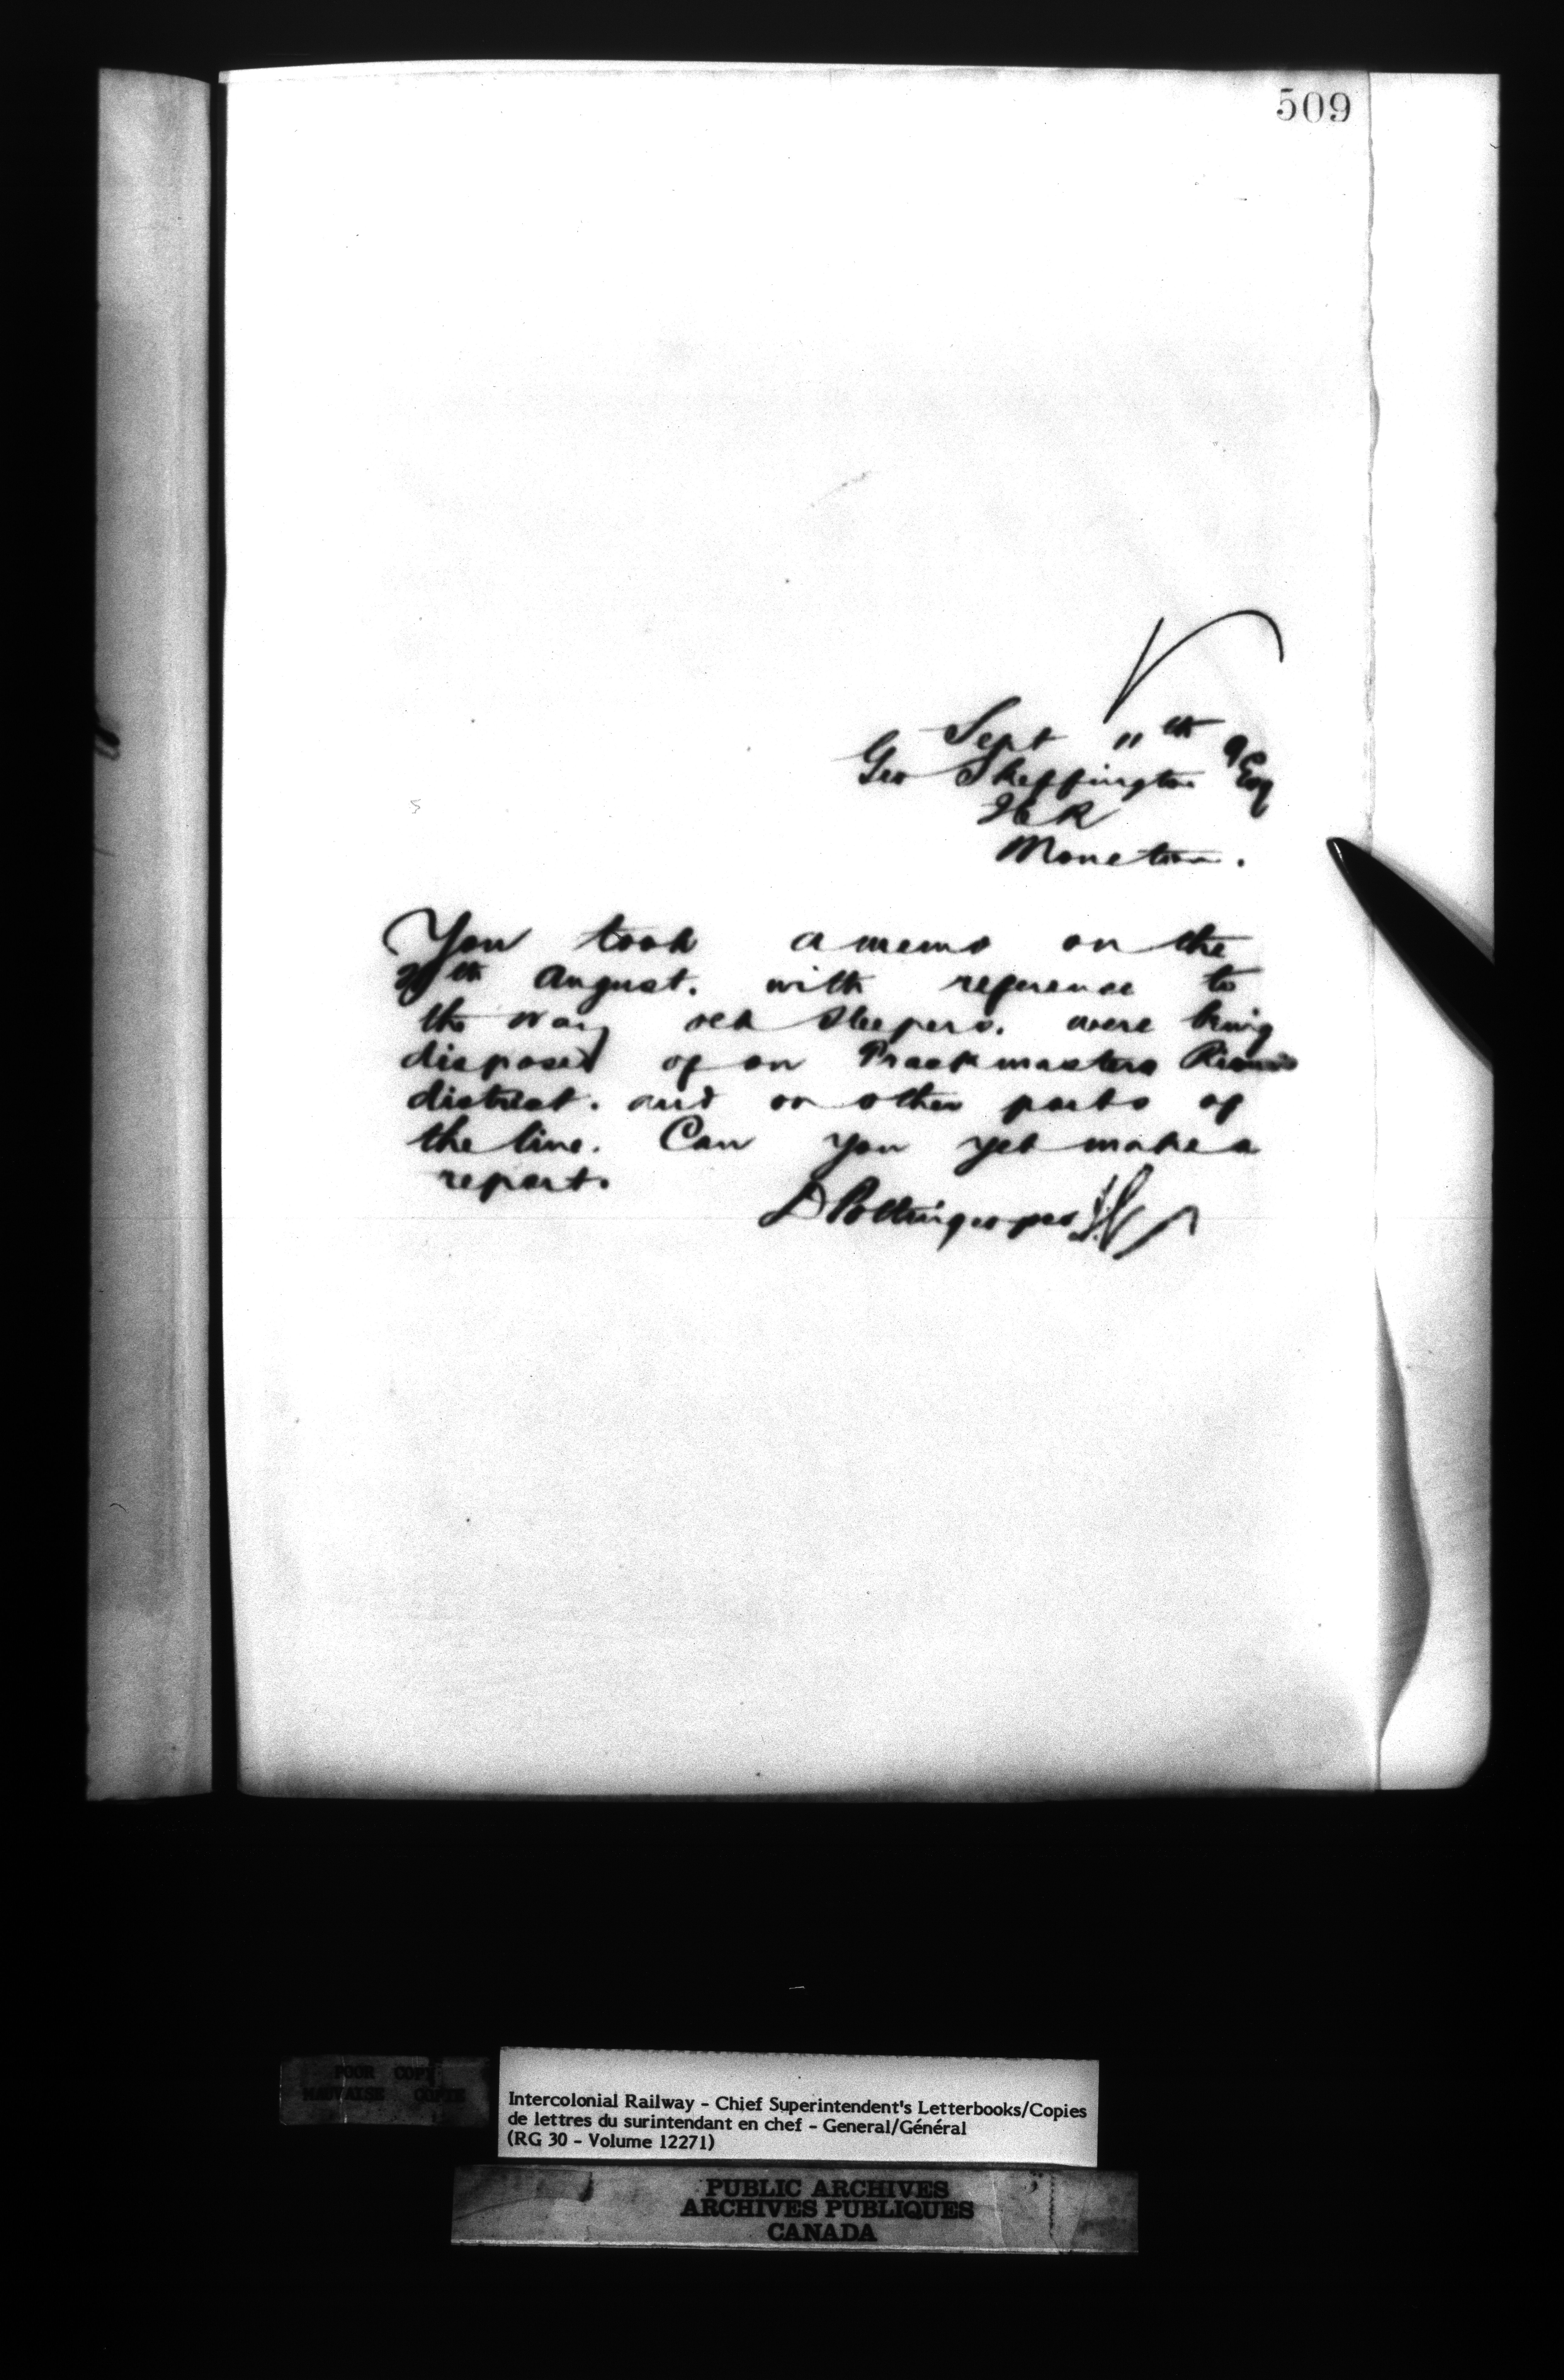 509
Sept 11th 9
Geo Skeffington Esq
ICR
Moncton.
You took a memo on the
th August. with reference to
the way old sleepers. were being
disposed of on Trackmasters
district. and on other parts of
the line. Can you yet make a
report.
D Pottinger per
POOR COPY
MAUVAISE COPIE
Intercolonial Railway - Chief Superintendent's Letterbooks/Copies
de lettres du surintendant en chef - General/Général
(RG 30 - Volume 12271)
PUBLIC ARCHIVES
ARCHIVES PUBLIQUES
CANADA